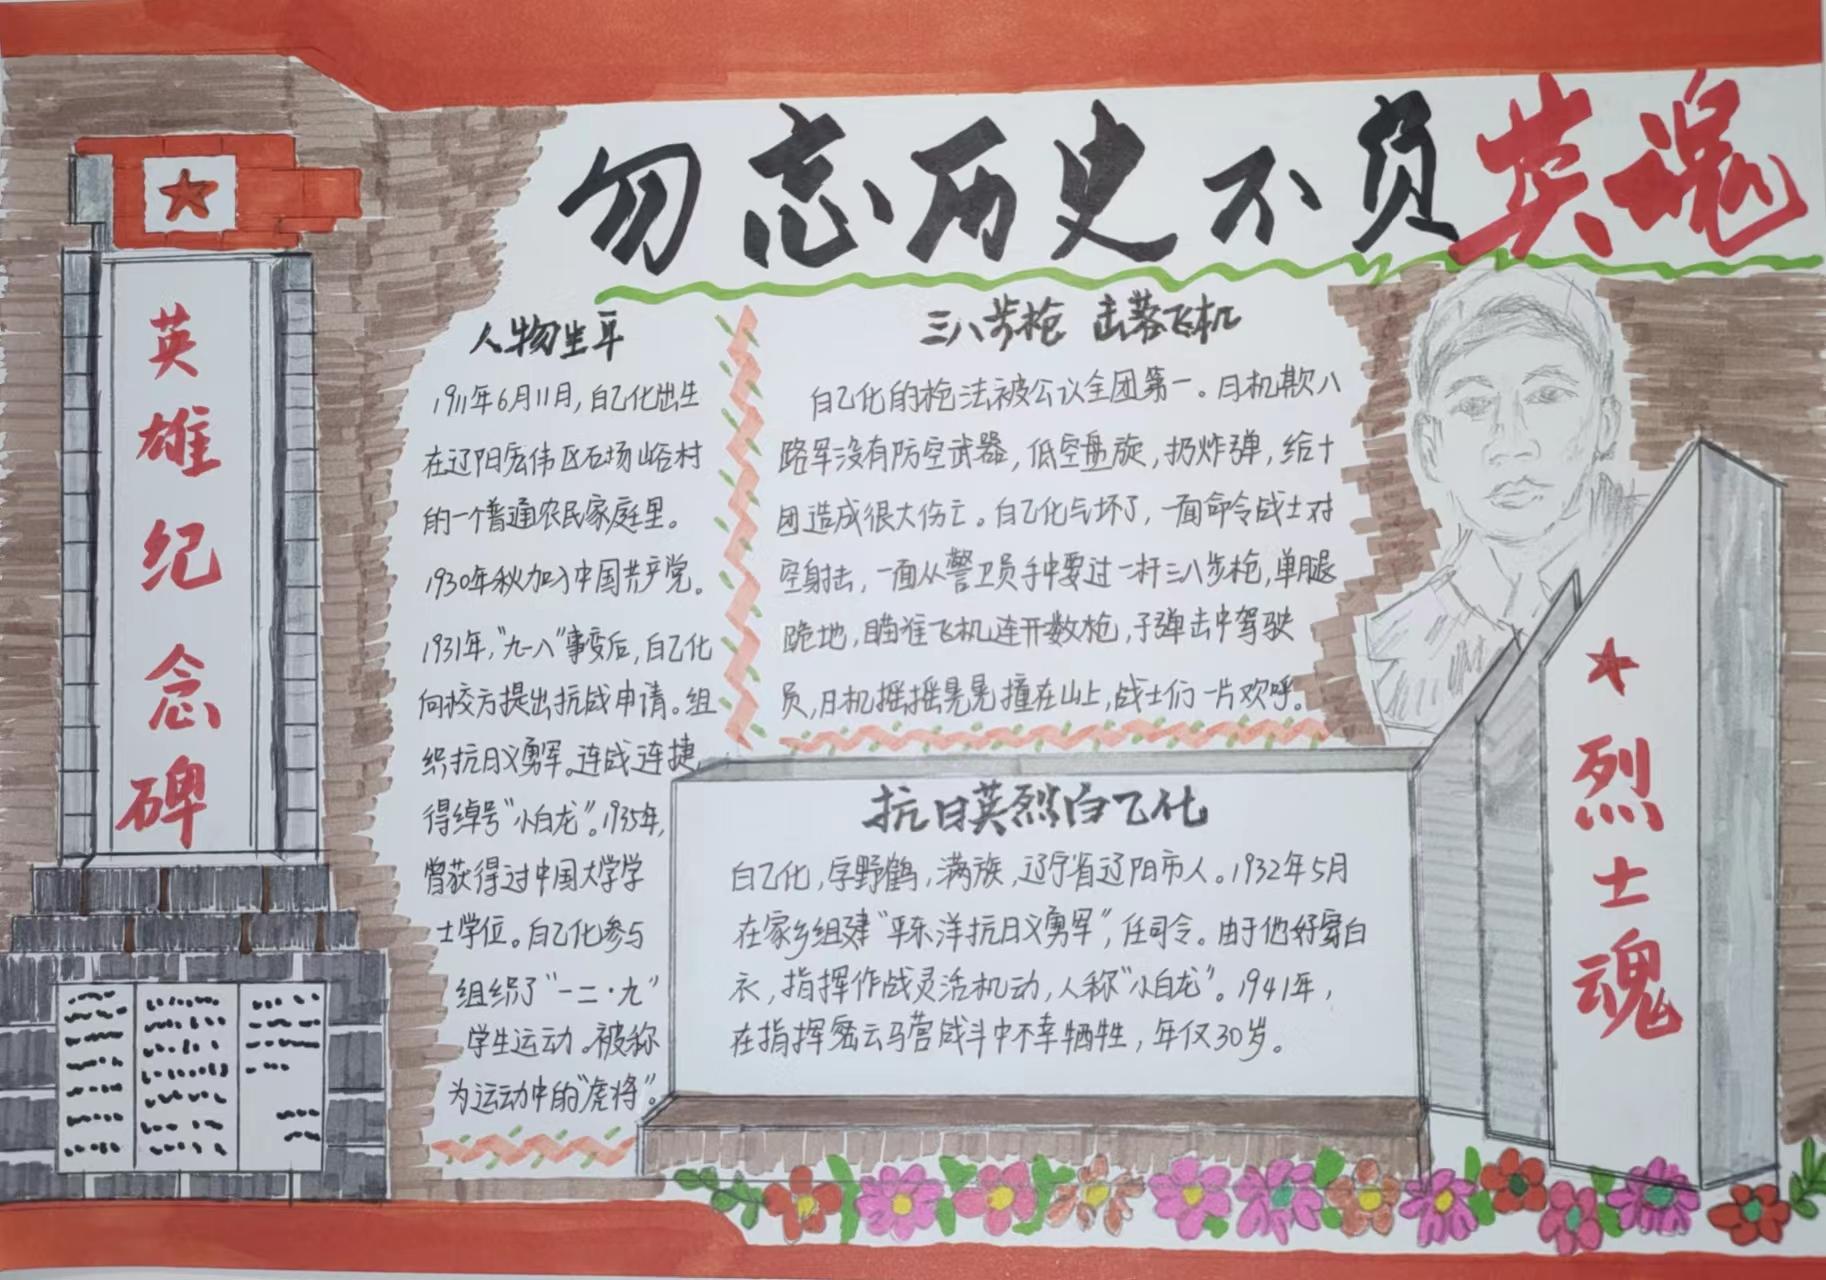 勿忘历史不负英魂
英雄纪念碑
人物生平
1911年6月11月,白乙化出生
在辽阳宏伟区石场峪村
的一个普通农民家庭里。
1930年秋加入中国共产党。
1931年,“九一八”事变后,白乙化
向校方提出抗战申请。组
织抗日义勇军。连战连捷,
得绰号“小白龙”。1935年,
曾获得过中国大学学
士学位。白乙化参与
组织了“一二·九”
学生运动。被称
为运动中的“虎将”。
三八步枪 击落飞机
白乙化的枪法被公议全团第一。日机欺八
路军没有防空武器,低空盘旋,扔炸弹,给十
团造成很大伤亡。白乙化气坏了,一面命令战士对
空射击,一面从警卫员手中要过一杆三八步枪,单腿
跪地,瞄准飞机连开数枪,子弹击中驾驶
员,日机摇摇晃晃撞在山上,战士们一片欢呼。
抗日英烈白乙化
白乙化,字野鹤,满族,辽宁省辽阳市人。1932年5月
在家乡组建“平东洋抗日义勇军”,任司令。由于他好穿白
衣,指挥作战灵活机动,人称“小白龙”。1941年,
在指挥密云马营战斗中不幸牺牲,年仅30岁。
烈士魂